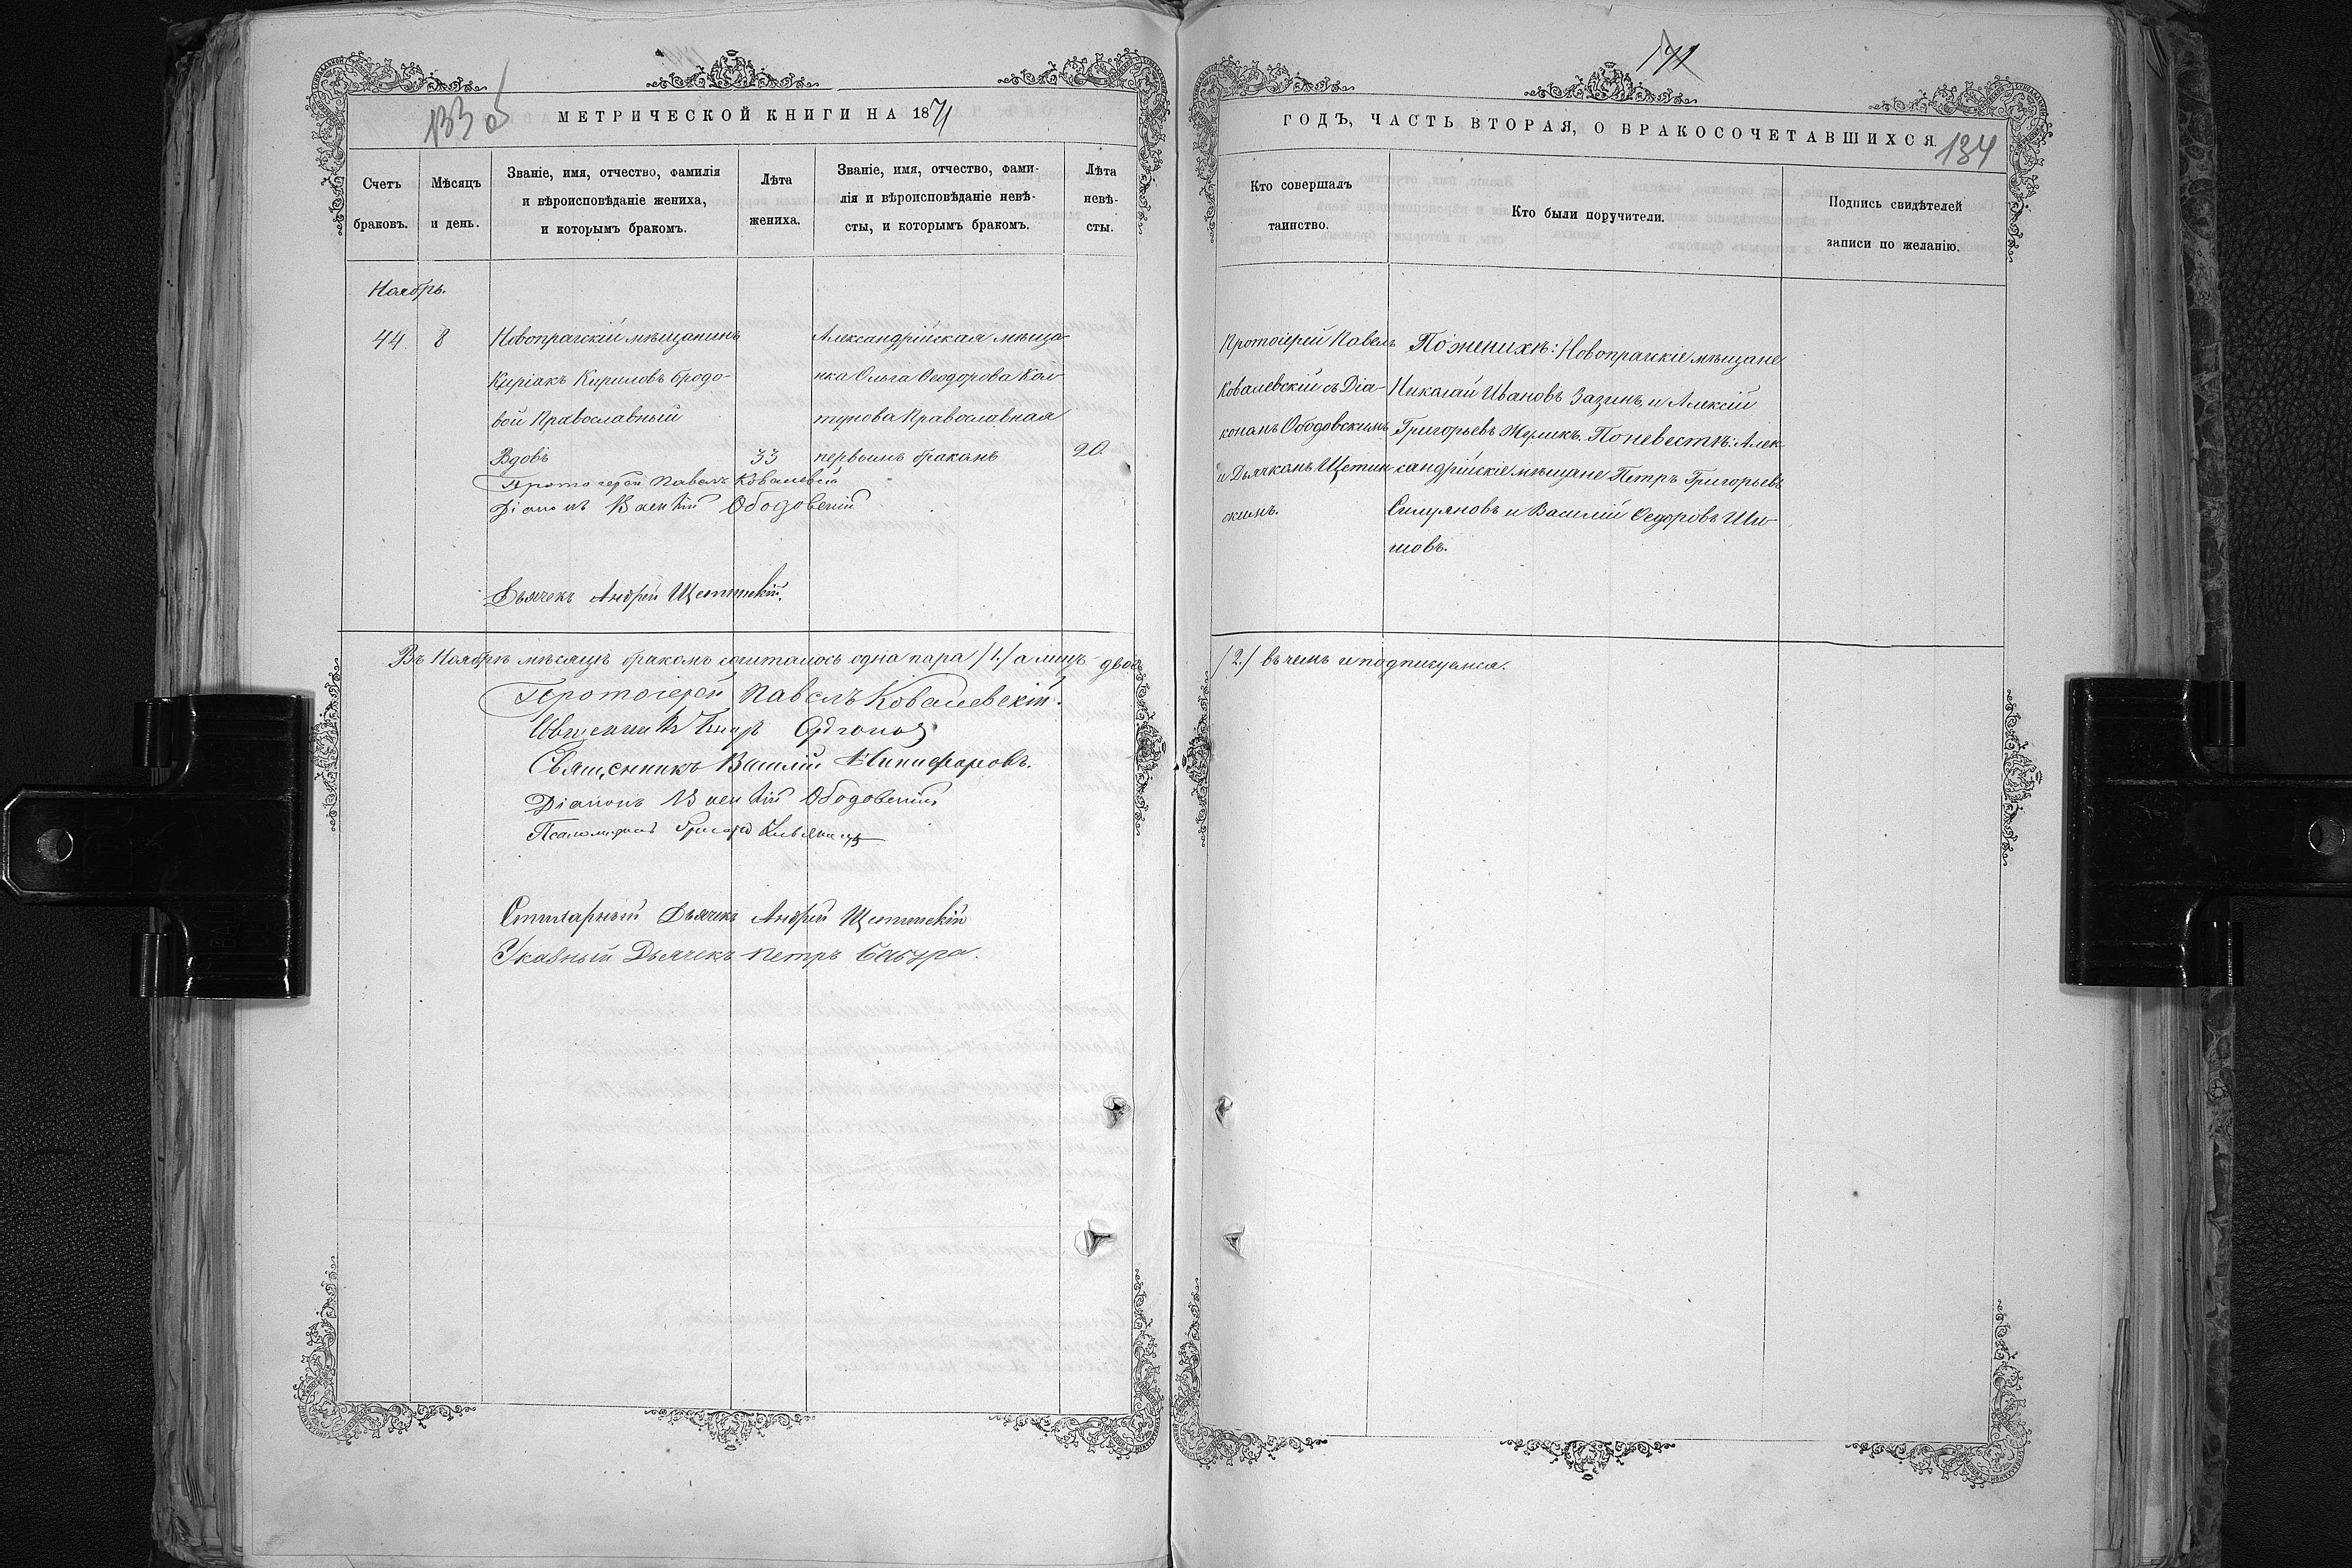 133 об
МЕТРИЧЕСКОЙ КНИГИ НА 1871
Счетъ браковъ.
Мѣсяцъ и день.
Званіе, имя, отчество, фамилія
и вѣроисповѣданіе жениха,
и которымъ бракомъ.
Лѣта
жениха.
Званіе, имя, отчество, фами-
лія и вѣроисповѣданіе невѣ-
сты, и которымъ бракомъ.
Лѣта
невѣ-
сты.
Ноябрь.
44
8
Новопрагскій мѣщанинъ
Киріакъ Кириловъ Бродо-
вой Православный
Вдовъ
33
Александрійская мѣща-
нка Ольга Ѳеодорова Кол-
тунова Православная
первымъ бракомъ
20.
Протоіерей Павелъ Ковалевскій
Діаконъ Ободовскій
Дьячекъ Андрей Щетинскій.
Въ Ноябрѣ мѣсяцѣ бракомъ сочиталось одна пара /1./ а лицъ двое
Протоіерей Павелъ Ковалевскій.
Священникъ
Священникъ Василій Никифоровъ.
Діаконъ Ободовскій
Псаломщикъ Григорій
Стихарный Дьячекъ Андрей Щетинскій
Указный Дьячекъ Петръ
171
ГОДЪ, ЧАСТЬ ВТОРАЯ, О БРАКОСОЧЕТАВШИХСЯ
134
Кто совершалъ
таинство.
Кто были поручители.
Подпись свидѣтелей
записи по желанію.
Протоіерей Павелъ
Ковалевскій съ Діа-
кономъ Ободовскимъ
и Дьячкомъ Щетин-
скимъ.
По женихѣ: Новопрагскіе мѣщане
Николай Ивановъ Зазинъ, и Алексій
Григорьевъ Жуликъ. По невестѣ: Алек-
сандрійскіе мѣщане Петръ Григорьевъ
Силуяновъ и Василій Ѳедоровъ Ши-
шовъ.
/2./ въ чемъ и подписуемся.